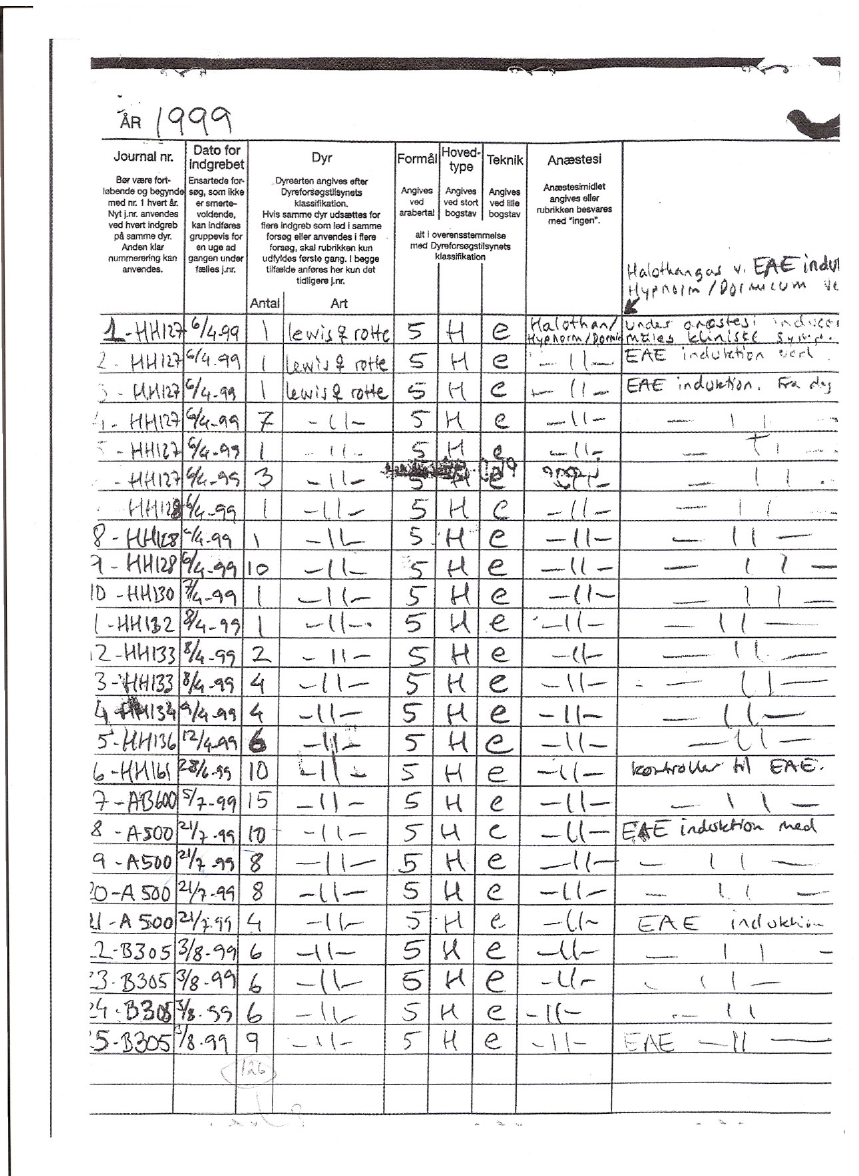 ÅR 1999
Journal nr.
Bør være fort-
løbende og begynde
med nr. 1 hvert år.
Nyt j.nr. anvendes
ved hvert indgreb
på samme dyr.
Anden klar
nummerering kan
anvendes.
Dato for
indgrebet
Ensartede for-
søg, som ikke
er smerte-
voldende,
kan indføres
gruppevis for
en uge ad
gangen under
fælles j.nr.
Dyr
Dyrearten angives efter
Dyreforsøgstilsynets
klassifikation.
Hvis samme dyr udsættes for
flere indgreb som led i samme
forsøg eller anvendes i flere
forsøg, skal rubrikken kun
udfyldes første gang. I begge
tilfælde anføres her kun det
tidligere j.nr.
Antal Art
Formål
Angives
ved
arabertal
Hoved-
type
Angives
ved stort
bogstav
Teknik
Angives
ved lille
bogstav
alt i overensstemmelse
med Dyreforsøgstilsynets
klassifikation
Anæstesi
Anæstesimidlet
angives eller
rubrikken besvares
med "ingen".
Halothangas v. EAE induk
Hypnorm/Dormicum ve
1-HH127 6/4.99 1 lewis ♀ rotte 5 H e Halothan/ under anæstesi inducer
Hypnorm/Dormi kliniske symp.
2-HH127 6/4.99 1 lewis ♀ rotte 5 H e -11- EAE induktion
3-HH127 6/4.99 1 lewis ♀ rotte 5 H e -11- EAE induktion. Fra dag
-HH127 6/4.99 7 -11- 5 H e -11- -11-
-HH127 6/4.99 1 -11- 5 H e -11- -11-
-HH127 6/4.99 3 -11- 5 H e -11- -11-
HH128 6/4.99 1 -11- 5 H e -11- -11-
8-HH128 6/4.99 1 -11- 5 H e -11- -11-
9-HH128 6/4.99 10 -11- 5 H e -11- -11-
10-HH130 7/4.99 1 -11- 5 H e -11- -11-
1-HH132 8/4-99 1 -11- 5 H e -11- -11-
2-HH133 8/4-99 2 -11- 5 H e -11- -11-
3-HH133 8/4-99 4 -11- 5 H e -11- -11-
4-HH134 9/4.99 4 -11- 5 H e -11- -11-
5-HH136 12/4.99 6 -11- 5 H e -11- -11-
6-HH161 28/6.99 10 -11- 5 H e -11- kontroller til EAE.
7-AB600 5/7-99 15 -11- 5 H e -11- -11-
8-A500 21/7.99 10 -11- 5 H e -11- EAE induktion med
9-A500 21/7.99 8 -11- 5 H e -11- -11-
20-A500 21/7.99 8 -11- 5 H e -11- -11-
21-A500 21/7.99 4 -11- 5 H e -11- EAE induktion
22-B305 3/8-99 6 -11- 5 H e -11- -11-
23-B305 3/8-99 6 -11- 5 H e -11- -11-
24-B305 3/8-99 6 -11- 5 H e -11- -11-
25-B305 3/8-99 9 -11- 5 H e -11- EAE -11-
126